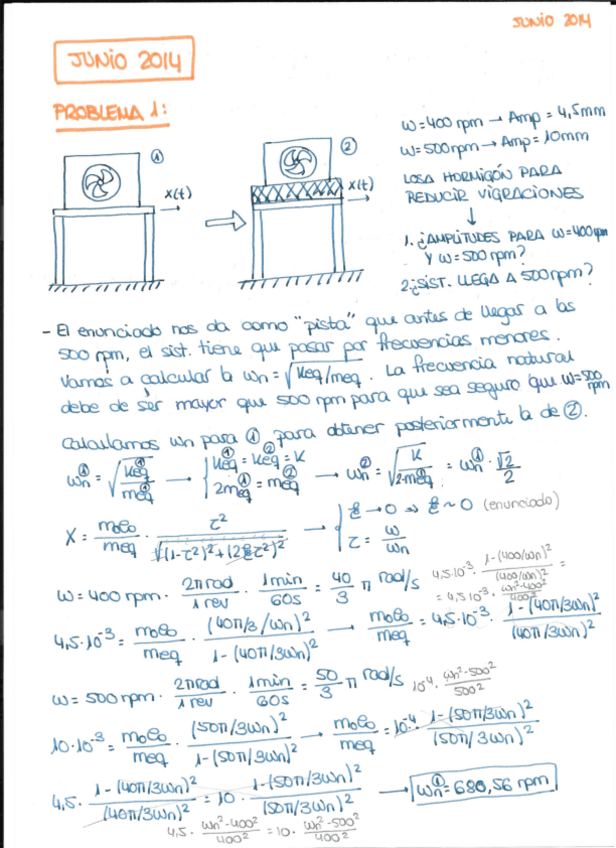 JUNIO 2014
JUNIO 2014
PROBLEMA 1:
① ②
X(t) X(t)
ω=400 rpm → Amp = 4,5mm
ω=500 rpm → Amp = 10mm
LOSA HORMIGÓN PARA
REDUCIR VIGRACIONES
↓
1. ¿AMPLITUDES PARA ω=400rpm
Y ω=500 rpm?
2¿SIST. LLEGA A 500 rpm?
- El enunciado nos da como "pista" que antes de llegar a las
500 rpm, el sist. tiene que pasar por frecuencias menores.
Vamos a calcular la ωn = √(Keq/meq). La frecuencia natural
debe de ser mayor que 500 rpm para que sea seguro que ω=500 rpm
Calculamos ωn para ① para obtener posteriormente la de ②.
ωn① = √(Keq①/meq①) → { Keq① = Keq② = K ; 2meq① = meq② → ωn② = √(K/(2·meq①)) = ωn① · √2/2
X = m₀e₀/meq · τ²/√((1-τ²)²+(2ξτ²)²) → { ξ → 0 ⇒ ξ ~ 0 (enunciado) ; τ = ω/ωn
4,5·10⁻³ · (1-(400/ωn)²)/(400/ωn)² =
= 4,5·10⁻³ · (ωn²-400²)/400²
ω = 400 rpm · 2π rad/1 rev · 1min/60s = 40/3 π rad/s
4,5·10⁻³ = m₀e₀/meq · (40π/3/ωn)²/(1-(40π/3ωn)²) → m₀e₀/meq = 4,5·10⁻³ · (1-(40π/3ωn)²)/(40π/3ωn)²
ω = 500 rpm · 2π rad/1 rev · 1min/60s = 50/3 π rad/s 10⁻⁴ · (ωn²-500²)/500²
10·10⁻³ = m₀e₀/meq · (50π/3ωn)²/(1-(50π/3ωn)²) → m₀e₀/meq = 10⁻⁴ · (1-(50π/3ωn)²)/(50π/3ωn)²
4,5 · (1-(40π/3ωn)²)/(40π/3ωn)² = 10 · (1-(50π/3ωn)²)/(50π/3ωn)² → ωn① = 680,56 rpm
4,5 · (ωn²-400²)/400² = 10 · (ωn²-500²)/400²